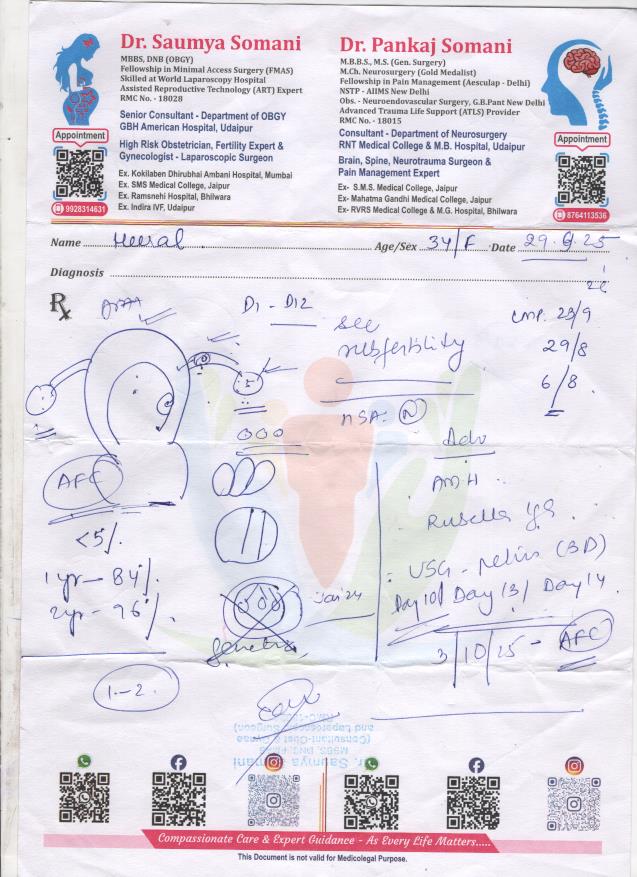 Dr. Saumya Somani
MBBS, DNB (OBGY)
Fellowship in Minimal Access Surgery (FMAS)
Skilled at World Laparoscopy Hospital
Assisted Reproductive Technology (ART) Expert
RMC No. - 18028
Senior Consultant - Department of OBGY
GBH American Hospital, Udaipur
High Risk Obstetrician, Fertility Expert &
Gynecologist - Laparoscopic Surgeon
Ex. Kokilaben Dhirubhai Ambani Hospital, Mumbai
Ex. SMS Medical College, Jaipur
Ex. Ramsnehi Hospital, Bhilwara
Ex. Indira IVF, Udaipur
Appointment
9928314631
Dr. Pankaj Somani
M.B.B.S., M.S. (Gen. Surgery)
M.Ch. Neurosurgery (Gold Medalist)
Fellowship in Pain Management (Aesculap - Delhi)
NSTP - AIIMS New Delhi
Obs. - Neuroendovascular Surgery, G.B.Pant New Delhi
Advanced Trauma Life Support (ATLS) Provider
RMC No. - 18015
Consultant - Department of Neurosurgery
RNT Medical College & M.B. Hospital, Udaipur
Brain, Spine, Neurotrauma Surgeon &
Pain Management Expert
Ex- S.M.S. Medical College, Jaipur
Ex- Mahatma Gandhi Medical College, Jaipur
Ex- RVRS Medical College & M.G. Hospital, Bhilwara
Appointment
8764113536
Name Age/Sex 34/F Date 29.9.25
Diagnosis
Rx
D1 - D12
LMP. 23/9
subfertility
29/8
6/8
HSA. N
Adv
AFC
AMH
Rubella IgG
<5%
USG - pelvis (3D)
1 yr - 84%
Day 10/ Day 13/ Day 14
2 yr - 96%
3/10/25 - AFC
Genetic
1-2
Compassionate Care & Expert Guidance - As Every Life Matters.....
This Document is not valid for Medicolegal Purpose.